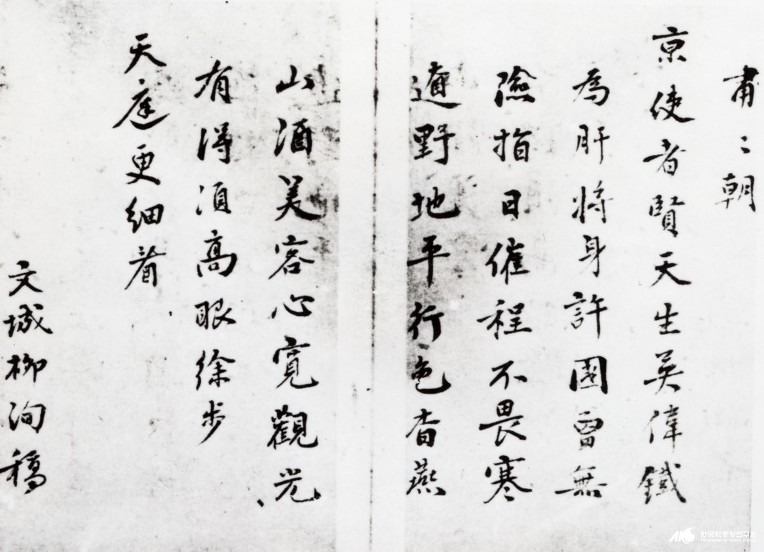 肅〻朝
京使者賢天生英偉鐵
為肝將身許國曾無
險指日催程不畏寒
遼野地平行色杳燕
山酒美客心寬觀光
有得須高眼徐步
天庭更細看
文城柳洵稿
한국학중앙연구원